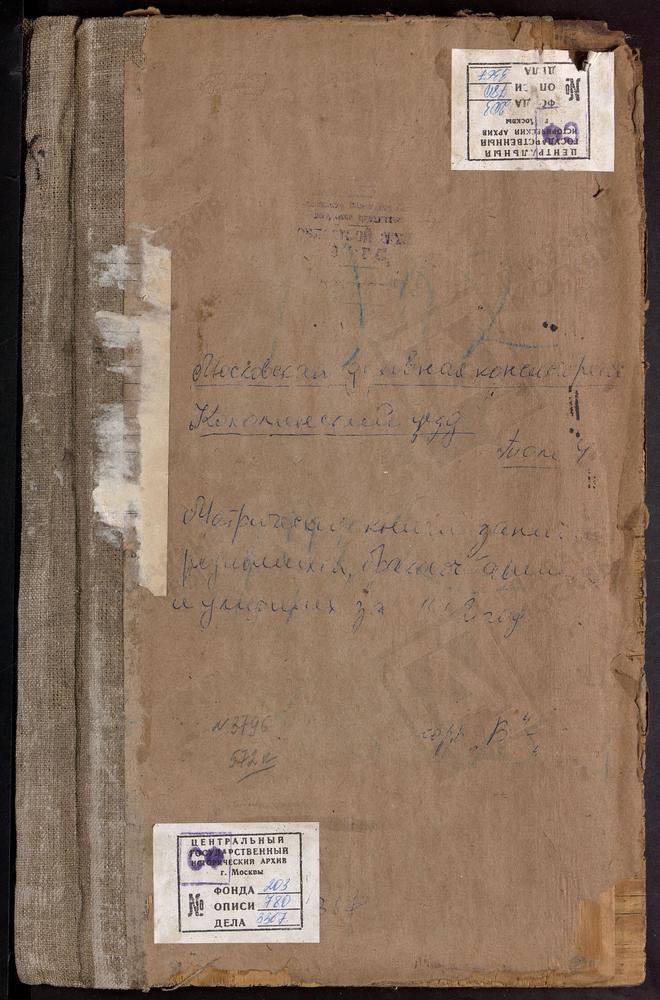 ЦЕНТРАЛЬНЫЙ
ГОСУДАРСТВЕННЫЙ
ИСТОРИЧЕСКИЙ АРХИВ
г. Москвы
ФОНДА 203
№ ОПИСИ 780
ДЕЛА 3367
Московская духовная консистория
Коломенский уезд
Том 4
Метрические книги записи
рождений, бракосочетаний
и умерших за год
№3796
572 л
сорт. "В"
ЦЕНТРАЛЬНЫЙ
ГОСУДАРСТВЕННЫЙ
ИСТОРИЧЕСКИЙ АРХИВ
г. Москвы
ФОНДА 203
№ ОПИСИ 780
ДЕЛА 3367